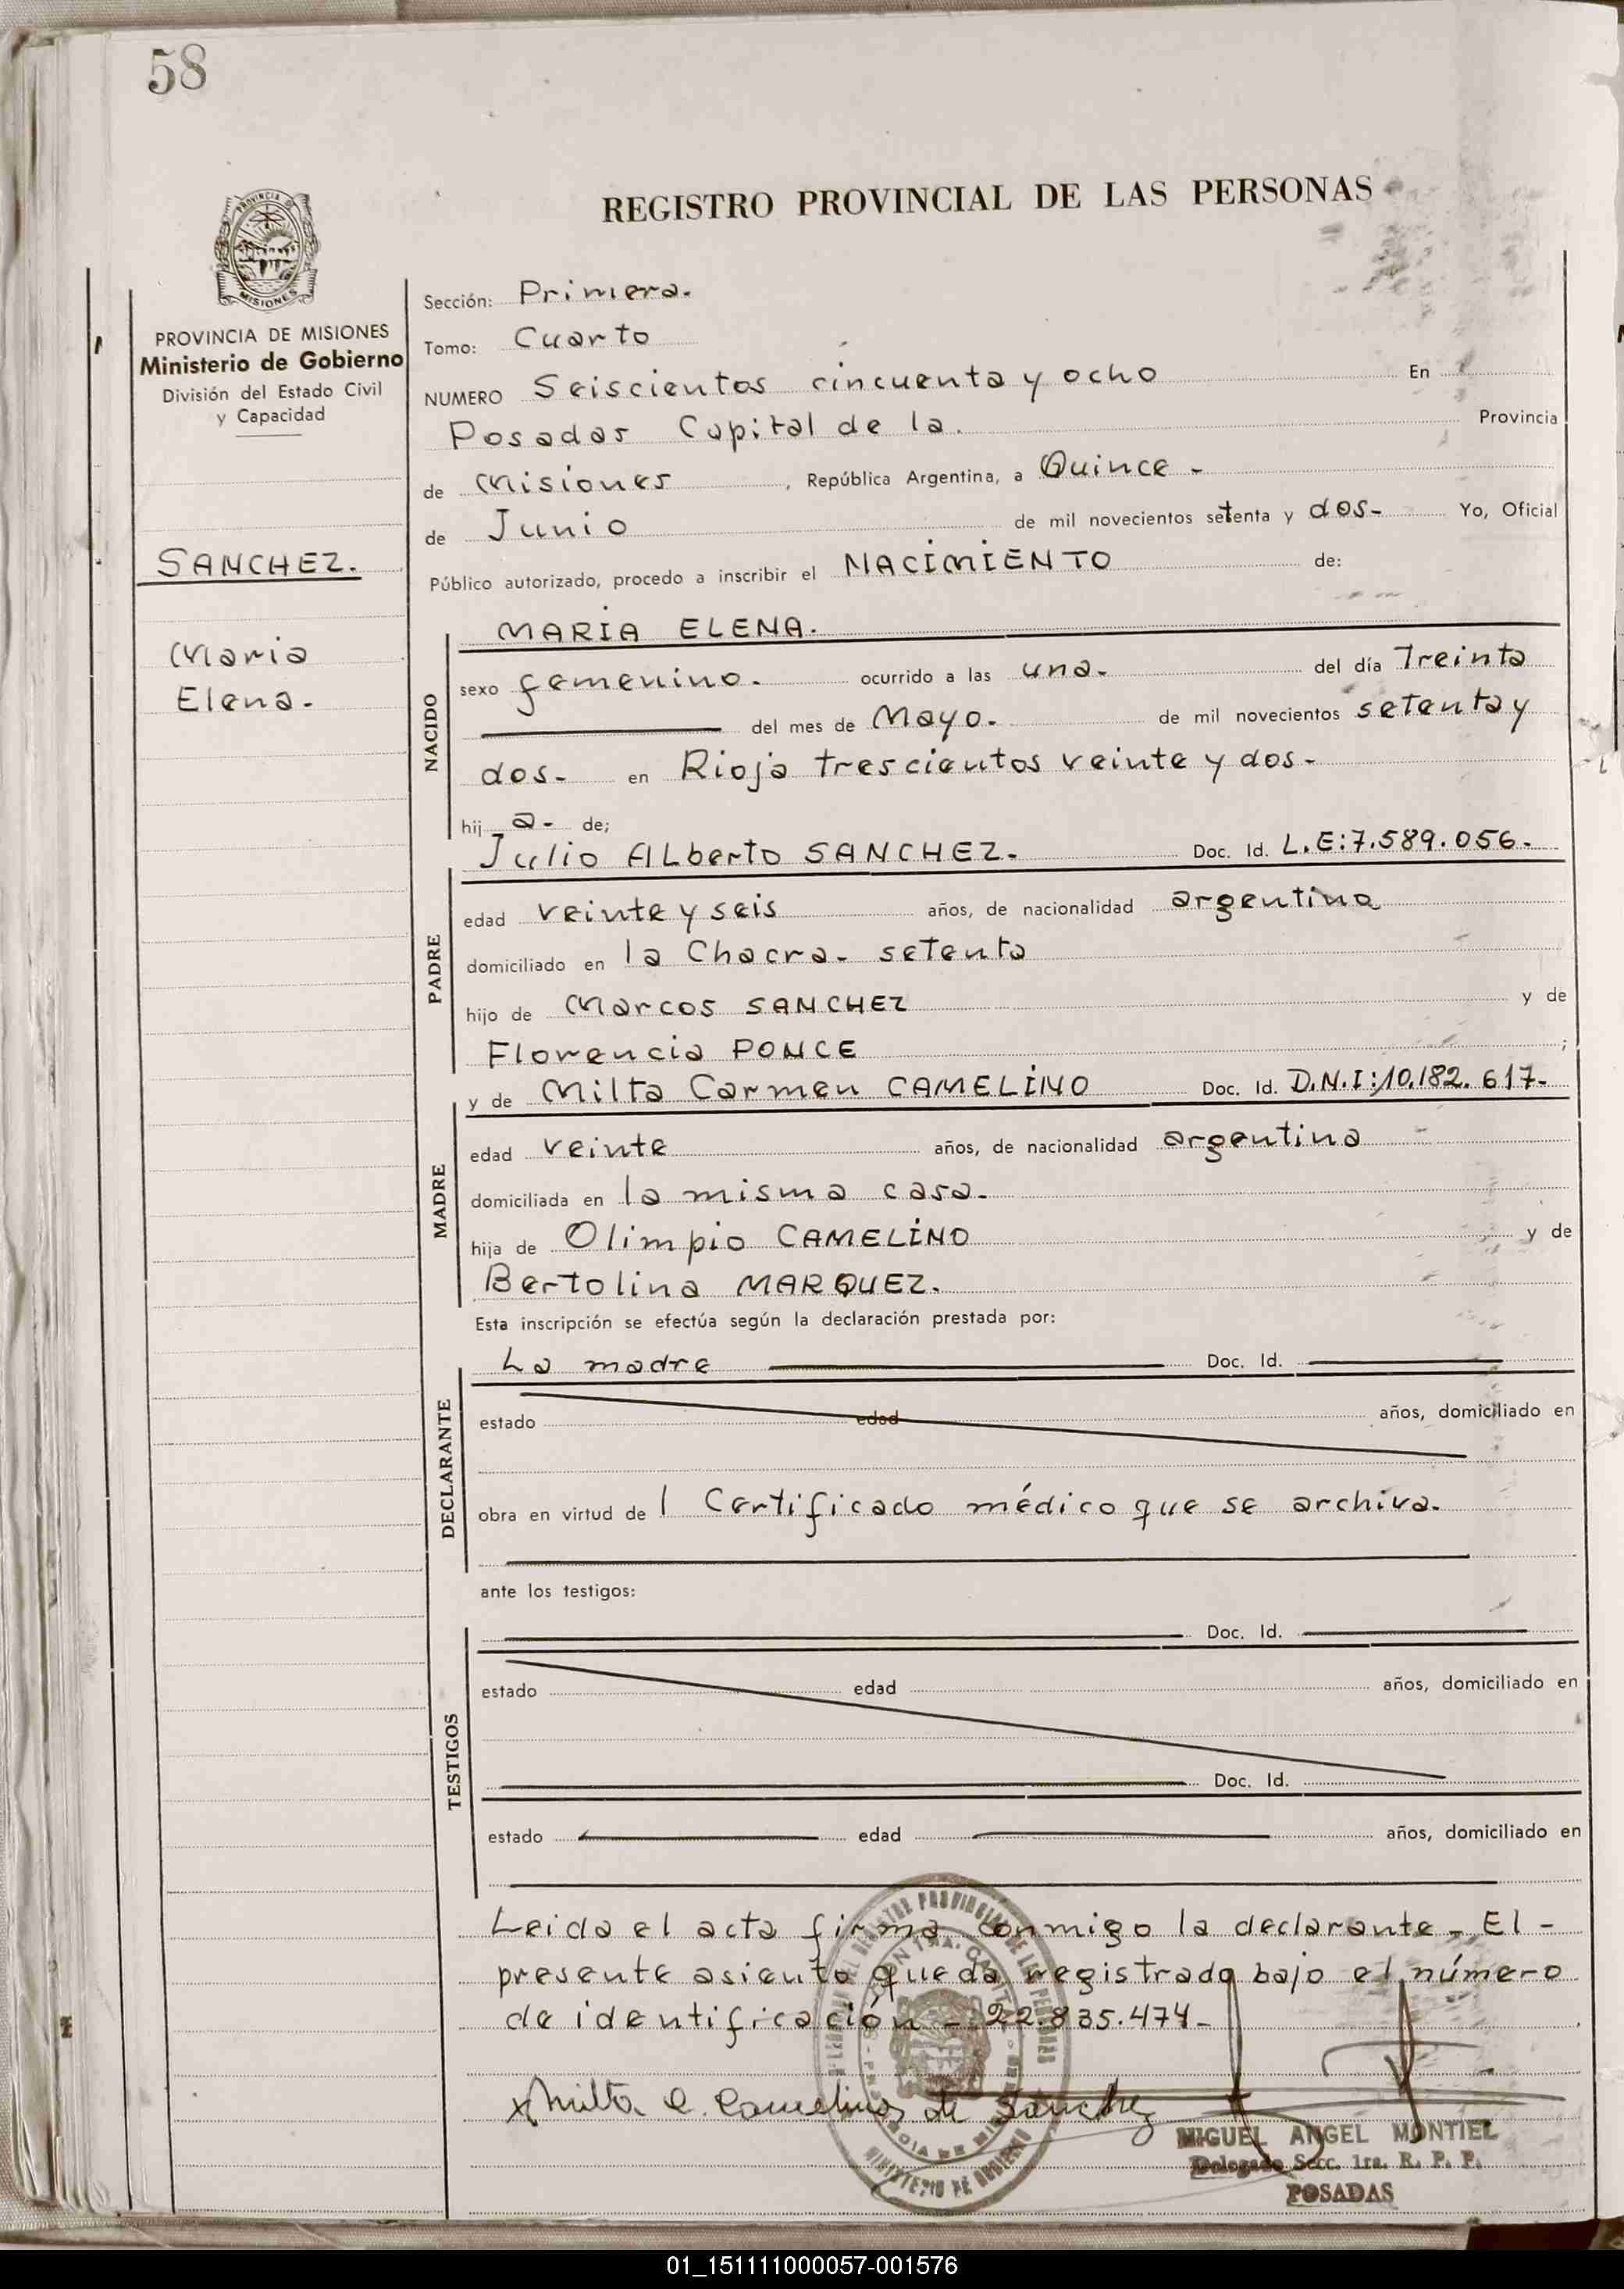 58
REGISTRO PROVINCIAL DE LAS PERSONAS
PROVINCIA DE MISIONES
Ministerio de Gobierno
División del Estado Civil
y Capacidad
SANCHEZ.
Maria
Elena.-
Sección: Primera.
Tomo: Cuarto
NUMERO Seiscientos cincuenta y ocho En
Posadas Capital de la. Provincia
de Misiones, República Argentina, a Quince -
de Junio de mil novecientos setenta y dos- Yo, Oficial
Público autorizado, procedo a inscribir el NACIMIENTO de:
NACIDO
MARIA ELENA.
sexo femenino. ocurrido a las una. del día Treinta
del mes de Mayo. de mil novecientos setenta y
dos- en Rioja trescientos veinte y dos-
hij a- de;
PADRE
Julio Alberto SANCHEZ. Doc. Id. L.E:7.589.056.-
edad veinte y seis años, de nacionalidad argentina
domiciliado en la Chacra- setenta
hijo de Marcos SANCHEZ y de
Florencia PONCE ;
MADRE
y de Milta Carmen CAMELINO Doc. Id. D.N.I:10.182.617-
edad veinte años, de nacionalidad argentina
domiciliada en la misma casa-
hija de Olimpio CAMELINO y de
Bertolina MARQUEZ.
Esta inscripción se efectúa según la declaración prestada por:
DECLARANTE
La madre Doc. Id.
estado edad años, domiciliado en
obra en virtud de 1 Certificado médico que se archiva.
ante los testigos:
TESTIGOS
Doc. Id.
estado edad años, domiciliado en
Doc. Id.
estado edad años, domiciliado en
Leida el acta firma conmigo la declarante- El-
presente asiento queda registrado bajo el número
de identificación- 22.835.474-
x Milta C. Camelino de Sanchez
MIGUEL ANGEL MONTIEL
Delegado Secc. 1ra. R. P. P.
POSADAS
MINISTERIO DE GOBIERNO
01_151111000057-001576